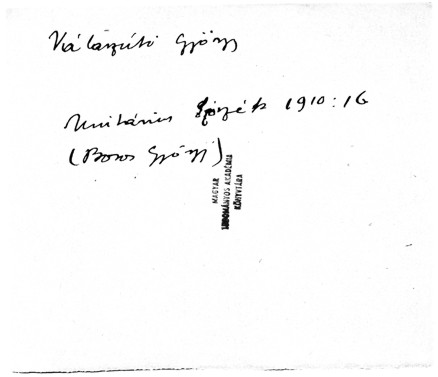 Válaszúti György
Unitárius Közlöny 1910:16
(Boros György)
MAGYAR
TUDOMÁNYOS AKADÉMIA
KÖNYVTÁRA